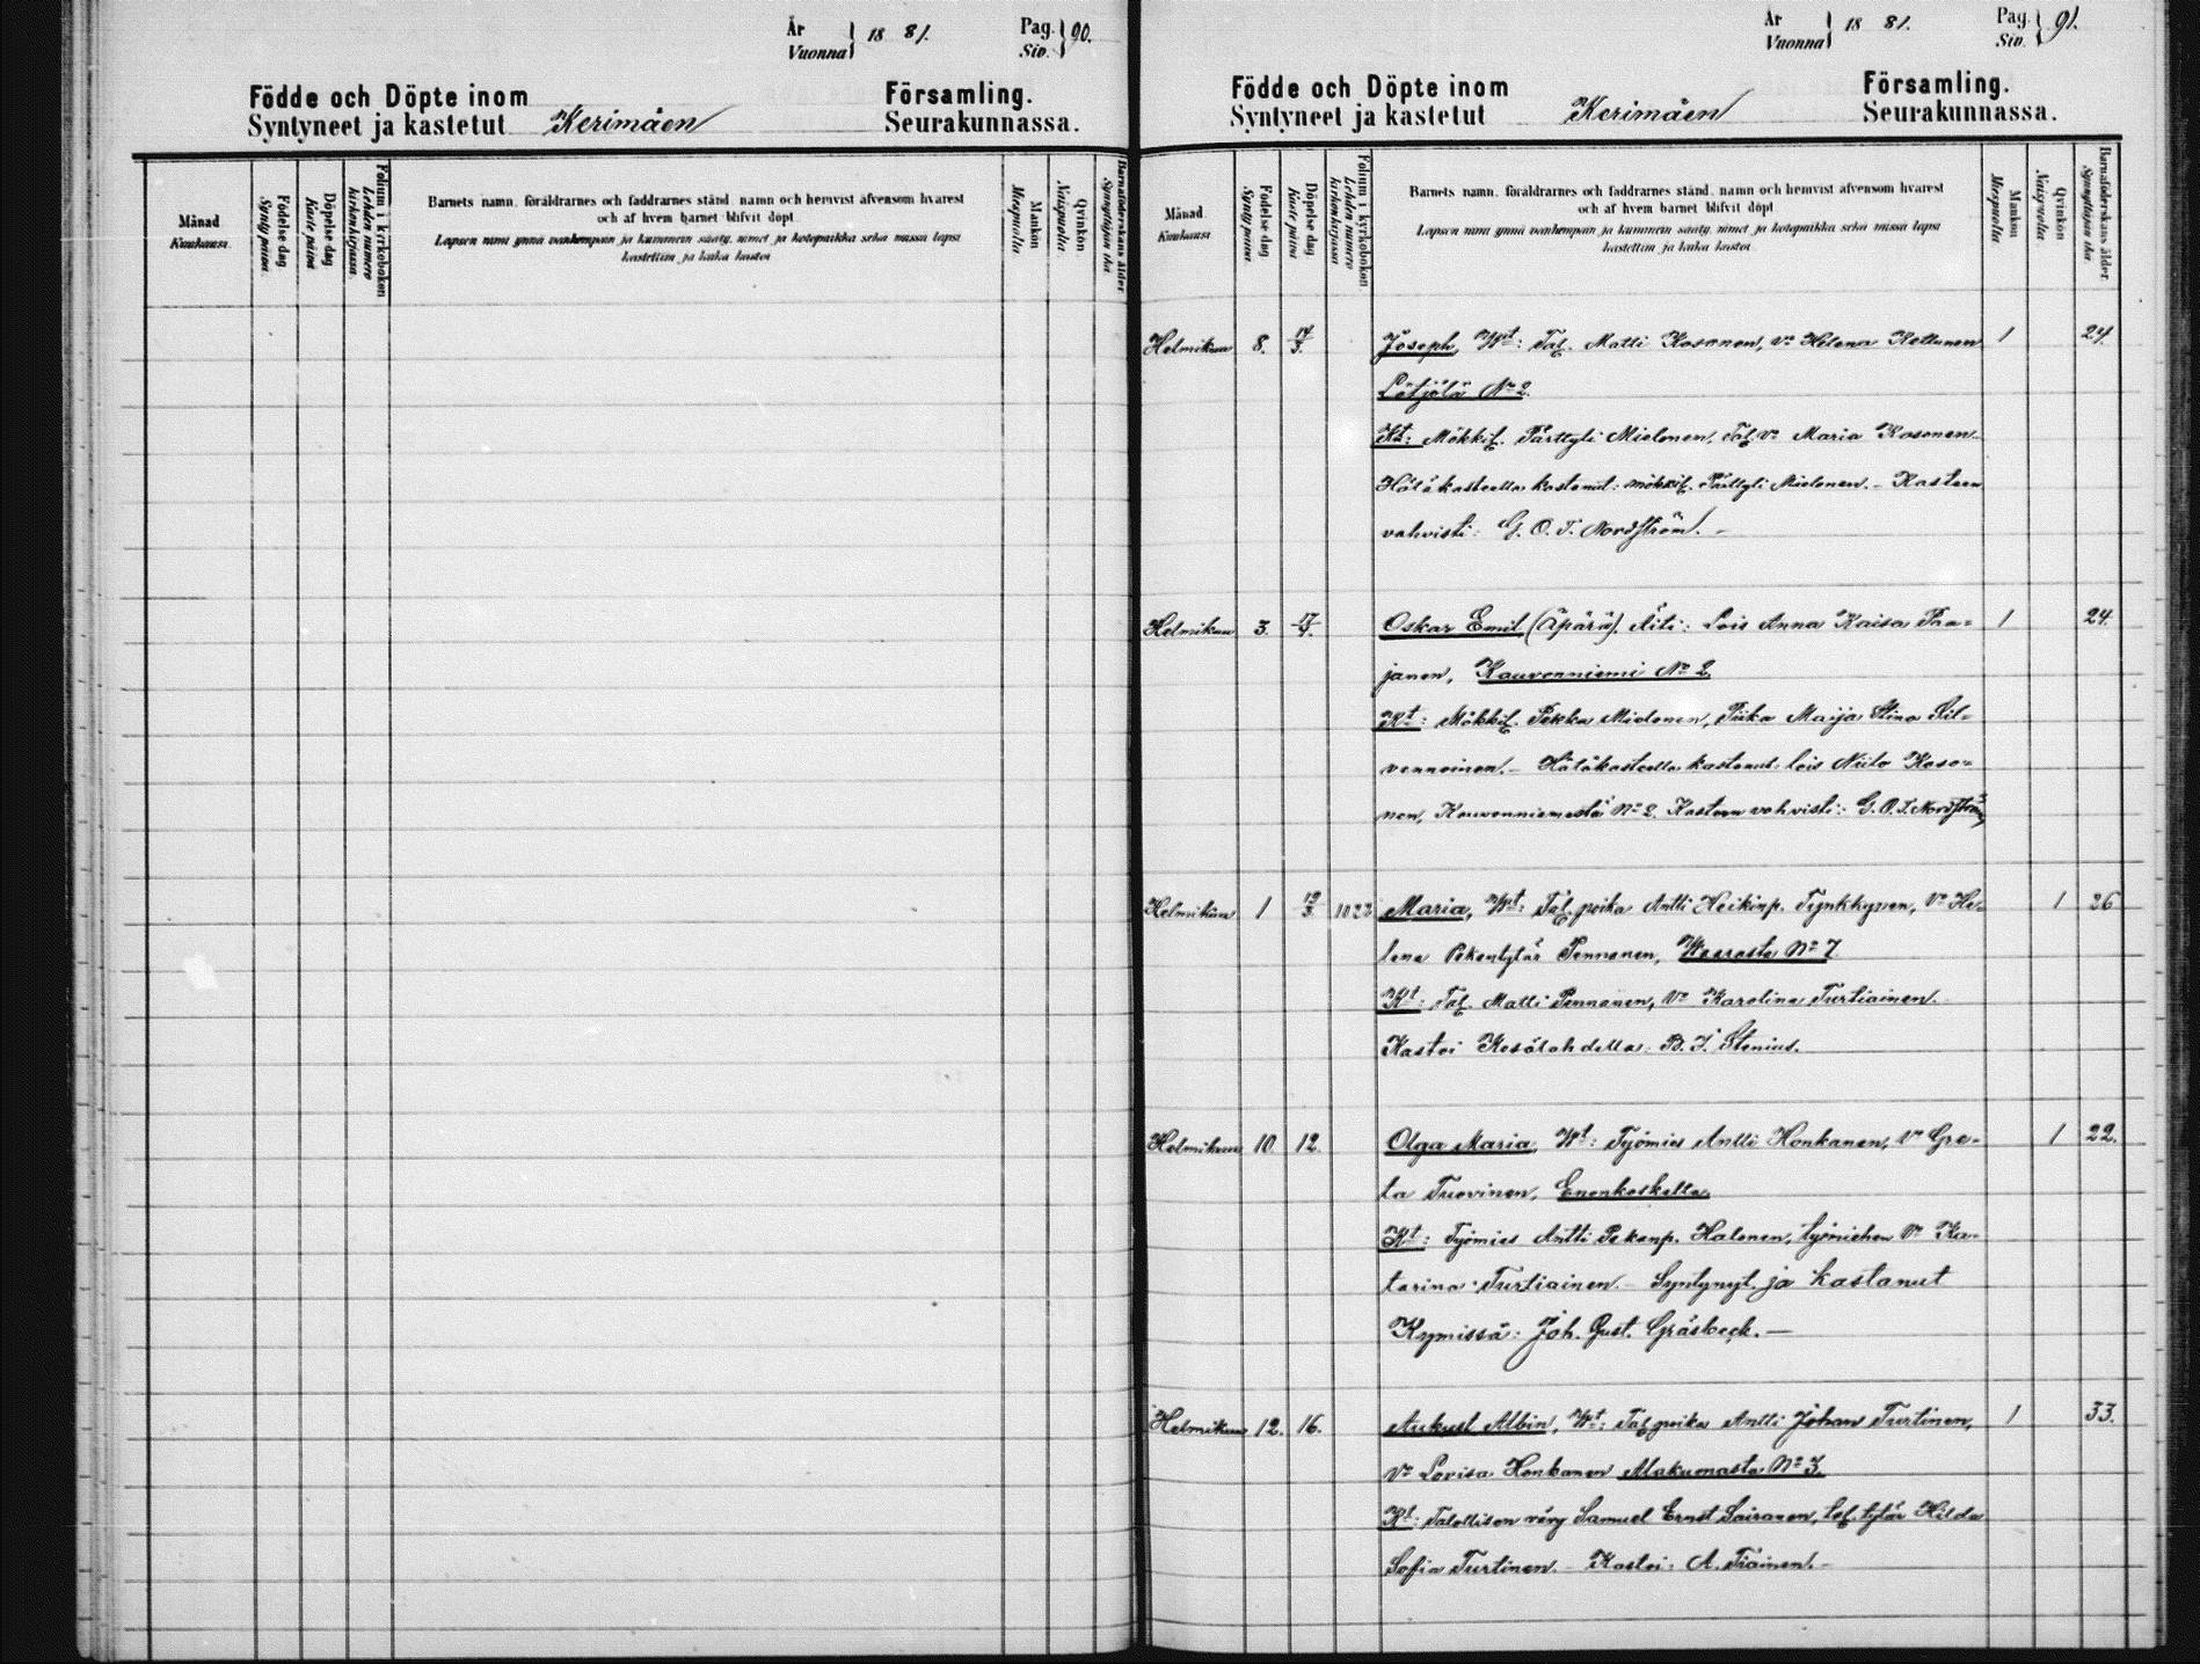 År
Vuonna } 18 81. Pag. Siv. } 90.
Födde och Döpte inom Församling.
Syntyneet ja kastetut Kerimäen Seurakunnassa.
Månad
Kuukausi.
Födelse dag
Synty päivä.
Döpelse dag
Kaste päivä
Folium i kyrkoboken
Lehden numero
kirkonkirjassa.
Barnets namn, föräldrarnes och faddrarnes stånd, namn och hemvist äfvensom hvarest
och af hvem barnet blifvit döpt.
Lapsen nimi ynnä vanhempain ja kummein sääty, nimet ja kotopaikka sekä missä lapsi
kastettiin ja kuka kastoi
Mankön
Miespuolia
Qvinkön
Naispuolia
Barnaföderskans ålder
Synnyttäjän ikä
År
Vuonna } 18 81. Pag. Siv. } 91.
Födde och Döpte inom Församling.
Syntyneet ja kastetut Kerimäen Seurakunnassa.
Månad
Kuukausi
Födelse dag
Synty päivä
Döpelse dag
Kaste päivä
Folium i kyrkoboken
Lehden numero
kirkonkirjassa
Barnets namn, föräldrarnes och faddrarnes stånd, namn och hemvist äfvensom hvarest
och af hvem barnet blifvit döpt
Lapsen nimi ynnä vanhempain ja kummein sääty, nimet ja kotopaikka sekä missä lapsi
kastettiin ja kuka kastoi
Mankön
Miespuolia
Qvinkön
Naispuolia
Barnaföderskans ålder
Synnyttäjän ikä
Helmikuu 8. 14/3. Joseph, Wt: Tal. Matti Kosonen, Vo Helena Kettunen 1 24.
Lötjölä No 2.
Kt: Mökkil. Pärttyli Mielonen, Tal. Vo Maria Kosonen
Hätäkasteella kastanut: mökkil. Pärttyli Mielonen. - Kasteen
vahvisti: G. O. T. Nordström. -
Helmikuu 3. 17/4. Oskar Emil (Äpärä). Äiti: Lois Anna Kaisa Paa=
janen, Kauvonniemi No 2.
Kt: Mökkil. Pekka Mielonen, Piika Maija Stina Sil=
vennoinen. - Hätäkasteella kastanut lois Niilo Koso=
nen, Kouvonniemestä No 2. Kasteen vahvisti: G. O. T. Nordström
Helmikuu 1 12/3. 1022 Maria, Wt: Tal. poika Antti Heikinp. Tynkkynen, Vo He= 1 26
lena Pekantytär Pennanen, No 7
Kt: Tal. Matti Pennanen, Vo Karolina Turtiainen.
Kastoi Kesälahdella: B. J. Stenius.
Helmikuu 10. 12. Olga Maria, Wt: Työmies Antti Honkanen, Vo Gre= 1 22.
ta Tuovinen, Enonkoskella.
Kt: Työmies Antti Pekanp. Halonen, työmiehen Vo Ka=
tarina Turtiainen. - Syntynyt ja kastanut
Kymissä: Joh. Gust. Gräsbeck. -
Helmikuu 12. 16. Aukust Albin, Wt: Tal. poika Antti Johan Turtinen, 1 33.
Vo Lovisa Honkanen Makuonasta No 3.
Kt: Talollisen vävy Samuel Ernst Sairanen, tal. tytär Hilda
Sofia Turtinen. - Kastoi: A. Tiainen. -